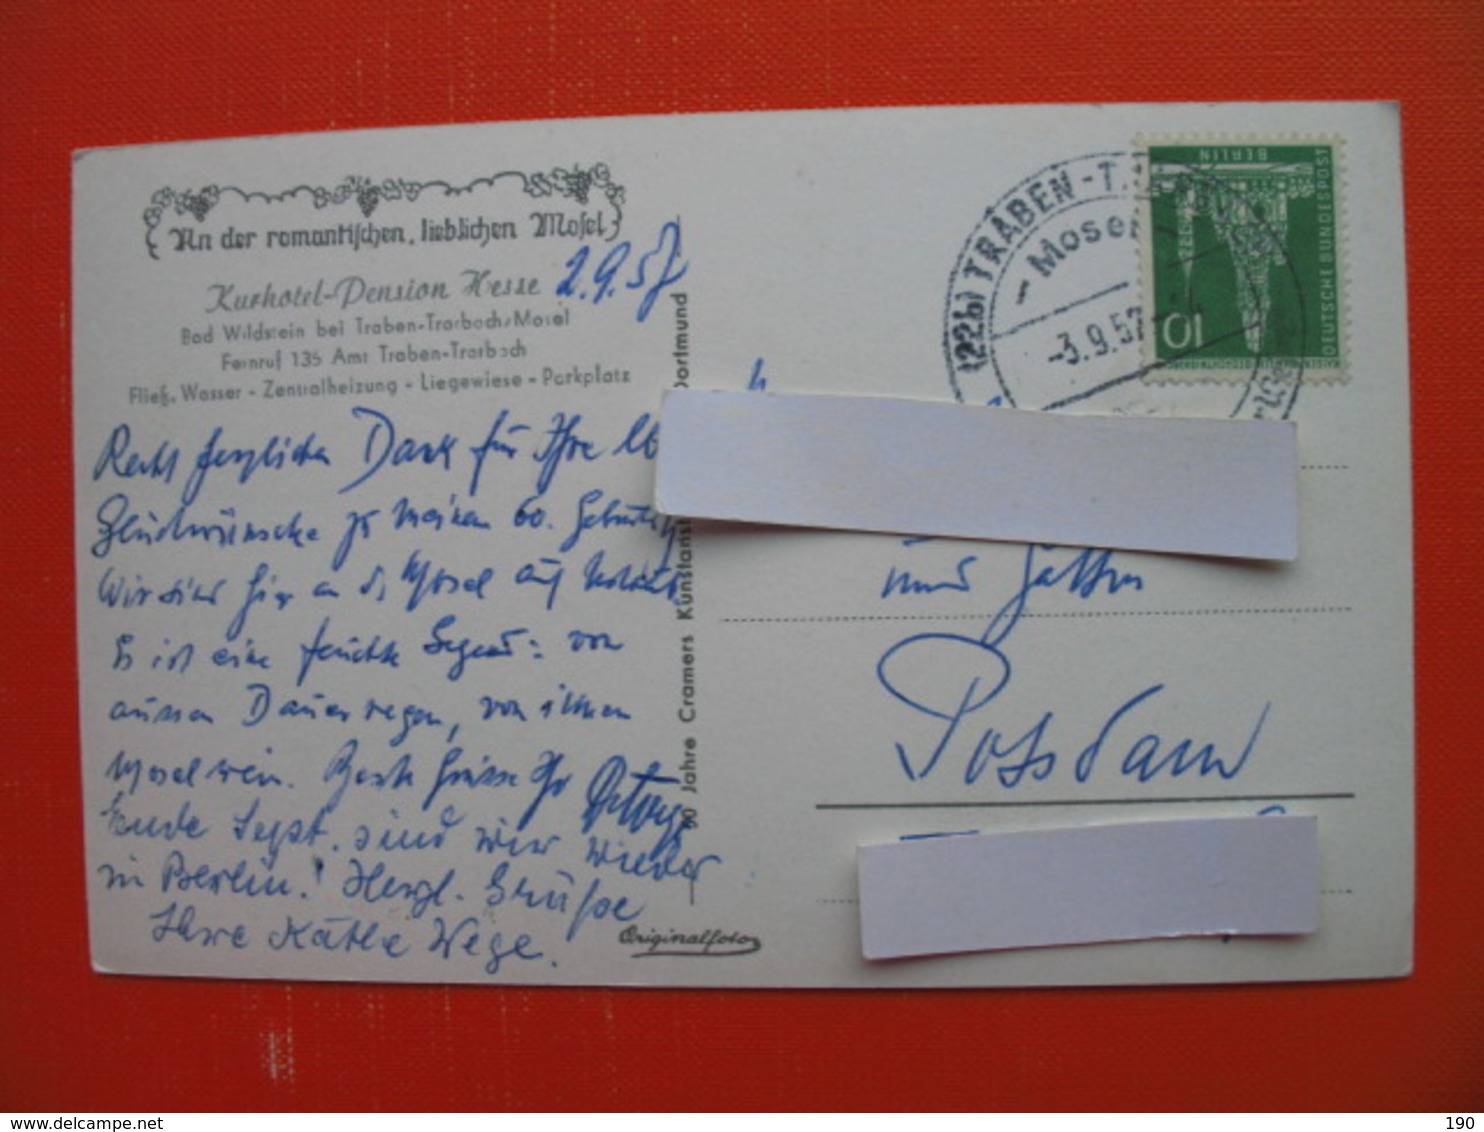 An der romantischen, lieblichen Mosel
Kurhotel-Pension Hesse
2.9.57
Bad Wildstein bei Traben-Trarbach/Mosel
Fernruf 135 Amt Traben-Trarbach
Fließ. Wasser - Zentralheizung - Liegewiese - Parkplatz
Recht herzlichen Dank für Ihre
Glückwünsche zu meinem 60. Geburtst
Wir sind hier an d. Mosel auf Urlaub.
Es ist eine feuchte Gegend: von
aussen Dauerregen, von innen
Moselwein. Beste Grüsse Ihr
Ende Sept. sind wir wieder
in Berlin! Herzl. Grüße
Ihre Käthe Wege.
50 Jahre Cramers Kunstanst Dortmund
Originalfoto
(22b) TRABEN-T
- Mosel
-3.9.57
BERLIN
DEUTSCHE BUNDESPOST
10
und Gatten
Potsdam
delcampe.net
190